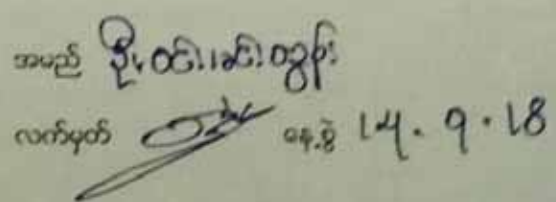 အမည် ဦးဝင်းခင်ထွန်း
လက်မှတ် နေ့စွဲ 14.9.18